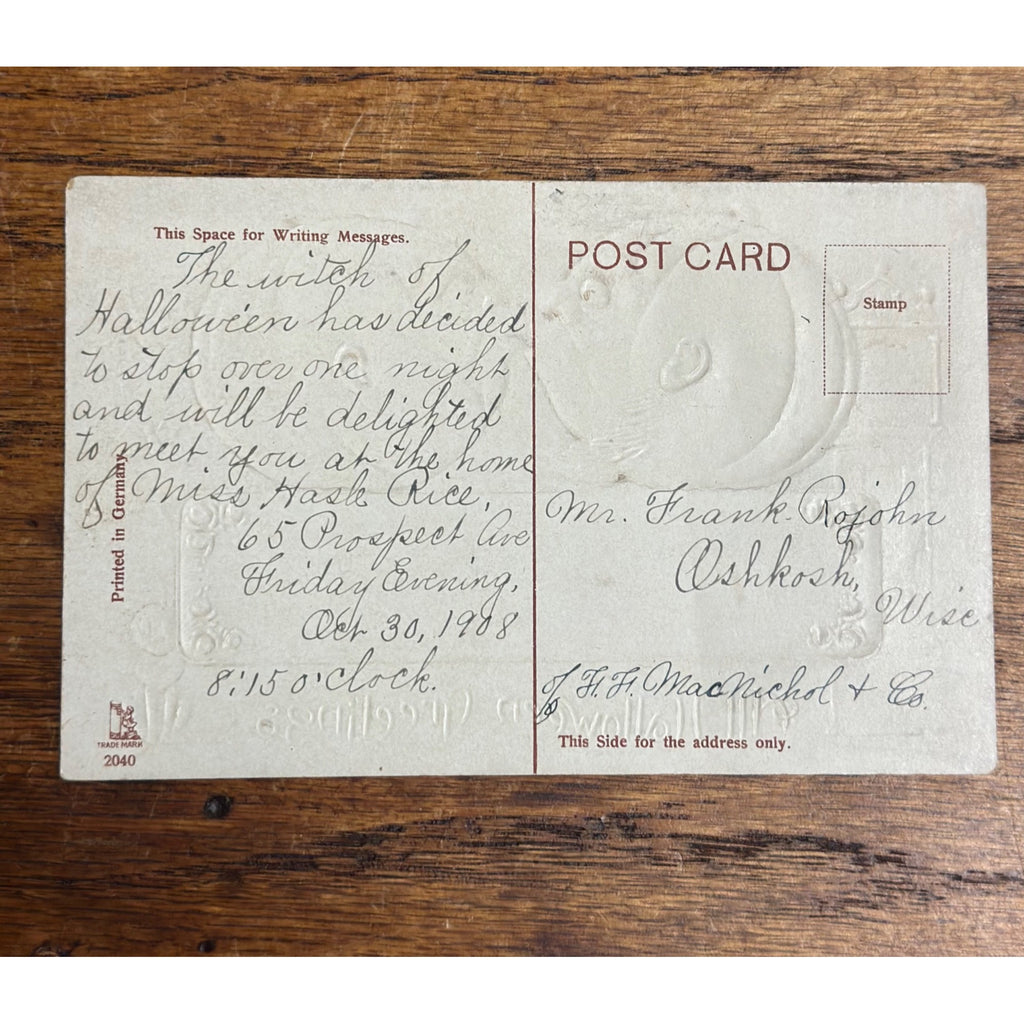 This Space for Writing Messages.
The witch of
Halloween has decided
to stop over one night
and will be delighted
to meet you at the home
of Miss Hasle Rice,
65 Prospect Ave
Friday Evening,
Oct 30, 1908
8:15 o'clock.
Printed in Germany.
TRADE MARK
2040
POST CARD
Stamp
Mr. Frank Rojohn
Oshkosh,
Wisc
℅ F. F. MacNichol & Co.
This Side for the address only.
Halloween Greetings